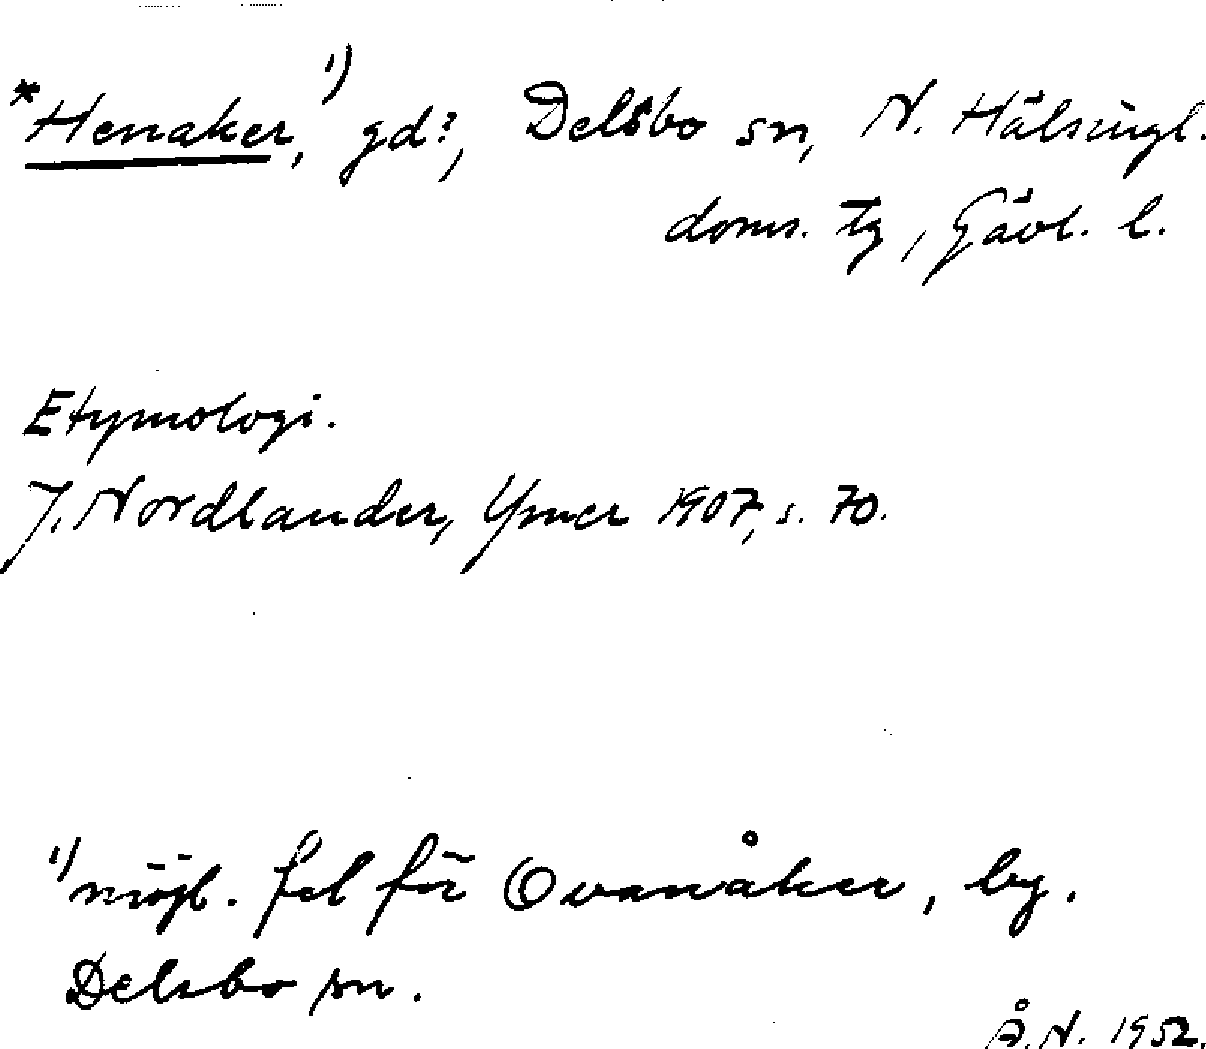 *Henaker,¹) gd?, Delsbo sn, N. Hälsingl.
doms. tg, Gävl. l.
Etymologi.
J. Nordlander, Ymer 1907, s. 70.
¹) möjl. fel för Ovanåker, by.
Delsbo sn.
Å.N. 1952.